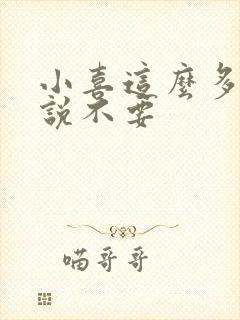 小喜這麼多
說不要
喵哥哥